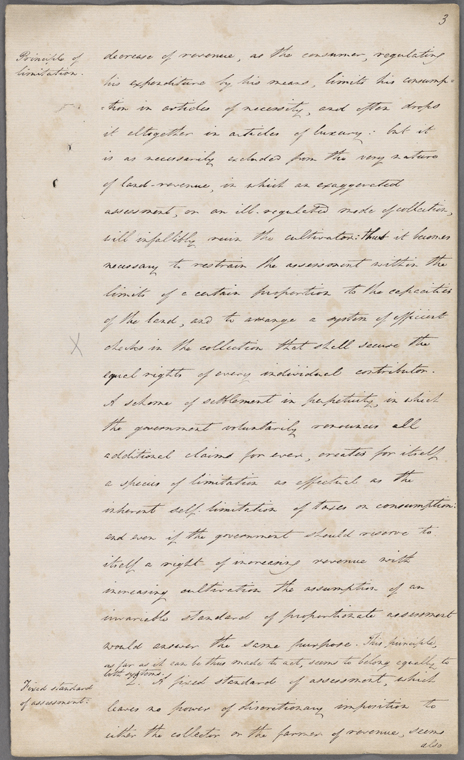 3
Principle of
limitation.
decrease of revenue, as the consumer, regulating
his expenditure by his means, limits his consump-
-tion in articles of necessity, and often drops
it altogether in articles of luxury: but it
is as necessarily excluded from the very nature
of land-revenue, in which an exaggerated
assessment, or an ill-regulated mode of collection,
will infallibly ruin the cultivator: thus it becomes
necessary to restrain the assessment within the
limits of a certain proportion to the capacities
of the land, and to arrange a system of efficient
checks in the collection that shall secure the
equal rights of every individual contributor.
A scheme of settlement in perpetuity, in which
the government voluntarily renounces all
additional claims for ever, creates for itself
a species of limitation as effectual as the
inherent self-limitation of taxes on consumption:
and even if the government should reserve to
itself a right of increasing revenue with
increasing cultivation the assumption of an
invariable standard of proportionate assessment
would answer the same purpose. This principle,
as far as it can be thus made to act, seems to belong equally to
both systems.
Fixed standard
of assessment.
2. A fixed standard of assessment, which
leaves no power of discretionary imposition to
either the collector or the farmer of revenue, seems
also